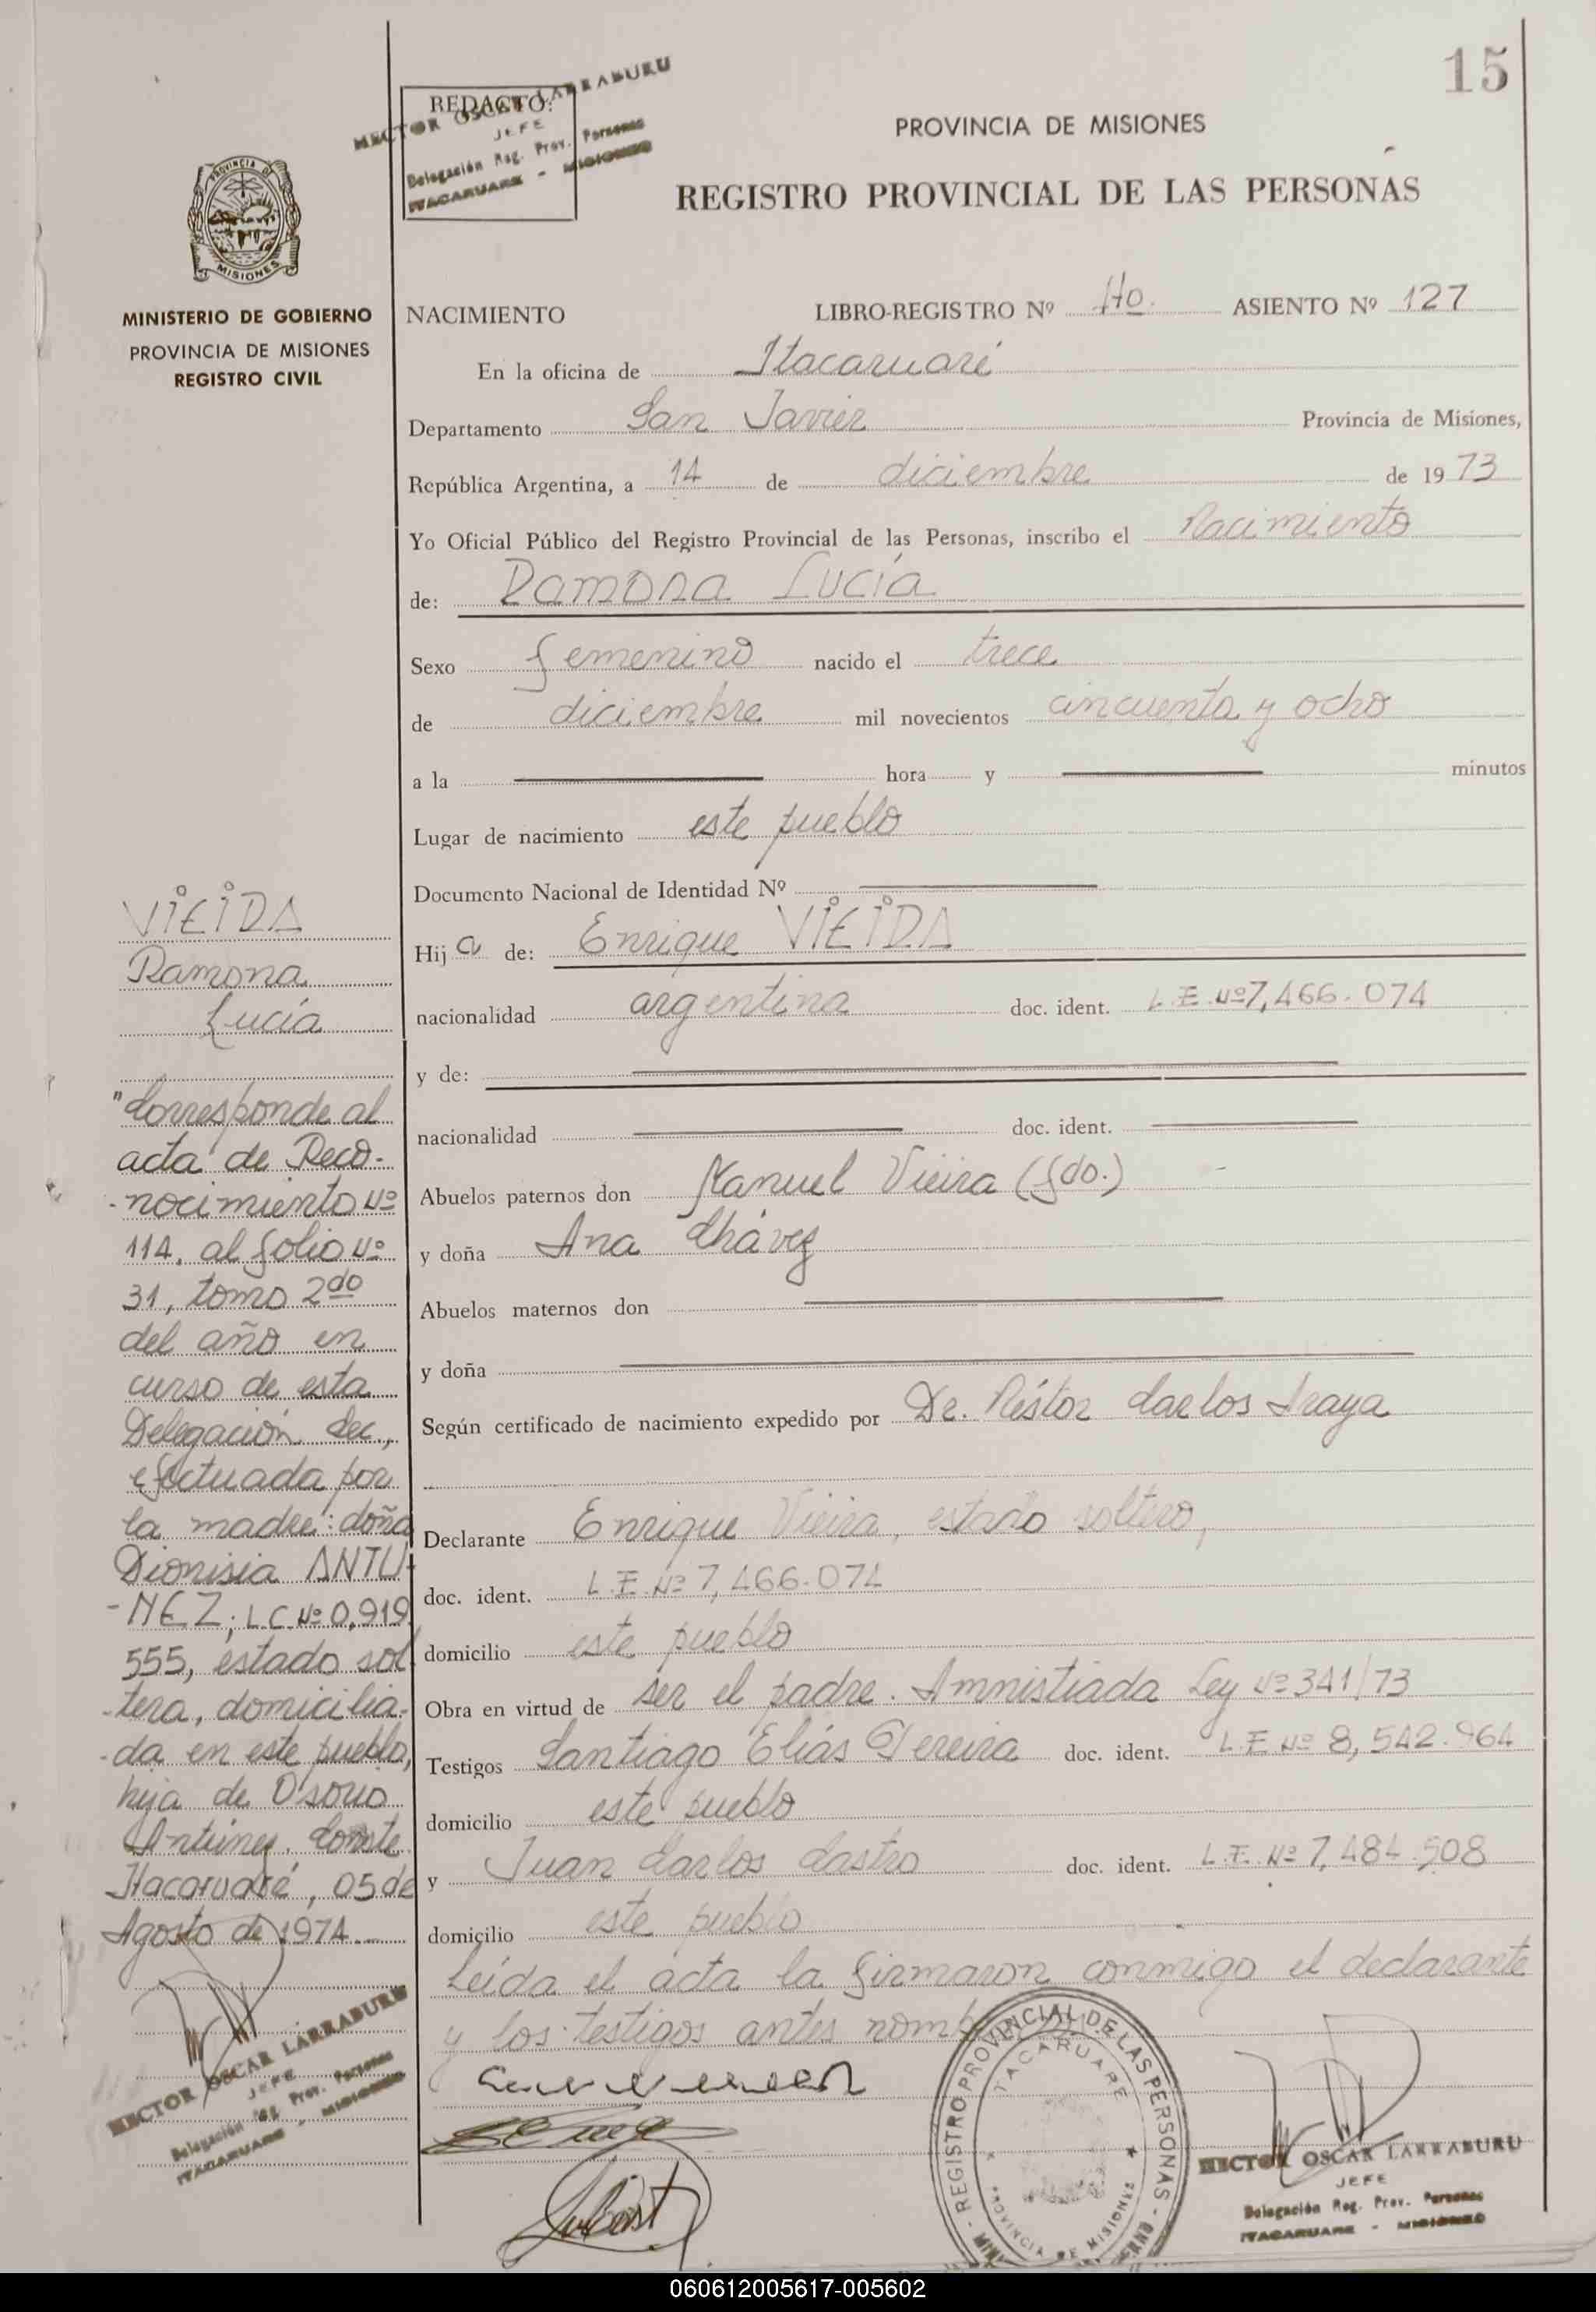 15
REDACTO:
HECTOR OSCAR LARRABURU
JEFE
Delegación Reg. Prov. Personas
ITACARUARE - MISIONES
PROVINCIA DE MISIONES
REGISTRO PROVINCIAL DE LAS PERSONAS
PROVINCIA DE
MISIONES
MINISTERIO DE GOBIERNO
PROVINCIA DE MISIONES
REGISTRO CIVIL
NACIMIENTO LIBRO-REGISTRO Nº 4to. ASIENTO Nº 127
En la oficina de Itacaruaré
Departamento San Javier Provincia de Misiones,
República Argentina, a 14 de diciembre de 1973
Yo Oficial Público del Registro Provincial de las Personas, inscribo el Nacimiento
de: Ramona Lucía
Sexo femenino nacido el trece
de diciembre mil novecientos cincuenta y ocho
a la hora y minutos
Lugar de nacimiento este pueblo
Documento Nacional de Identidad Nº
Hija de: Enrique VIEIRA
nacionalidad argentina doc. ident. L.E. Nº 7,466.074
y de:
nacionalidad doc. ident.
Abuelos paternos don Manuel Vieira (fdo.)
y doña Ana Chávez
Abuelos maternos don
y doña
Según certificado de nacimiento expedido por Dr. Néstor Carlos Araya
Declarante Enrique Vieira, estado soltero,
doc. ident. L.E. Nº 7,466.074
domicilio este pueblo
Obra en virtud de ser el padre. Amnistiada Ley Nº 341/73
Testigos Santiago Elías Pereira doc. ident. L.E Nº 8,542.964
domicilio este pueblo
y Juan Carlos Castro doc. ident. L.E. Nº 7,484.508
domicilio este pueblo
Leída el acta la firmaron conmigo el declarante
y los testigos antes
VIEIRA
Ramona
Lucía
"Corresponde al
acta de Reco-
-nocimiento Nº
114, al folio Nº
31, tomo 2do
del año en
curso de esta
Delegación Sec.,
efectuada por
la madre: doña
Dionisia ANTU-
-NEZ; L.C. Nº 0,919
555, estado sol
-tera, domicilia-
-da en este pueblo,
hija de Osorio
Antúnez. Conste.
Itacaruaré, 05 de
Agosto de 1974.
HECTOR OSCAR LARRABURU
JEFE
Delegación Reg. Prov. Personas
ITACARUARE - MISIONES
REGISTRO PROVINCIAL DE LAS PERSONAS
ITACARUARE
PROVINCIA DE MISIONES
HECTOR OSCAR LARRABURU
JEFE
Delegación Reg. Prov. Personas
ITACARUARE - MISIONES
060612005617-005602